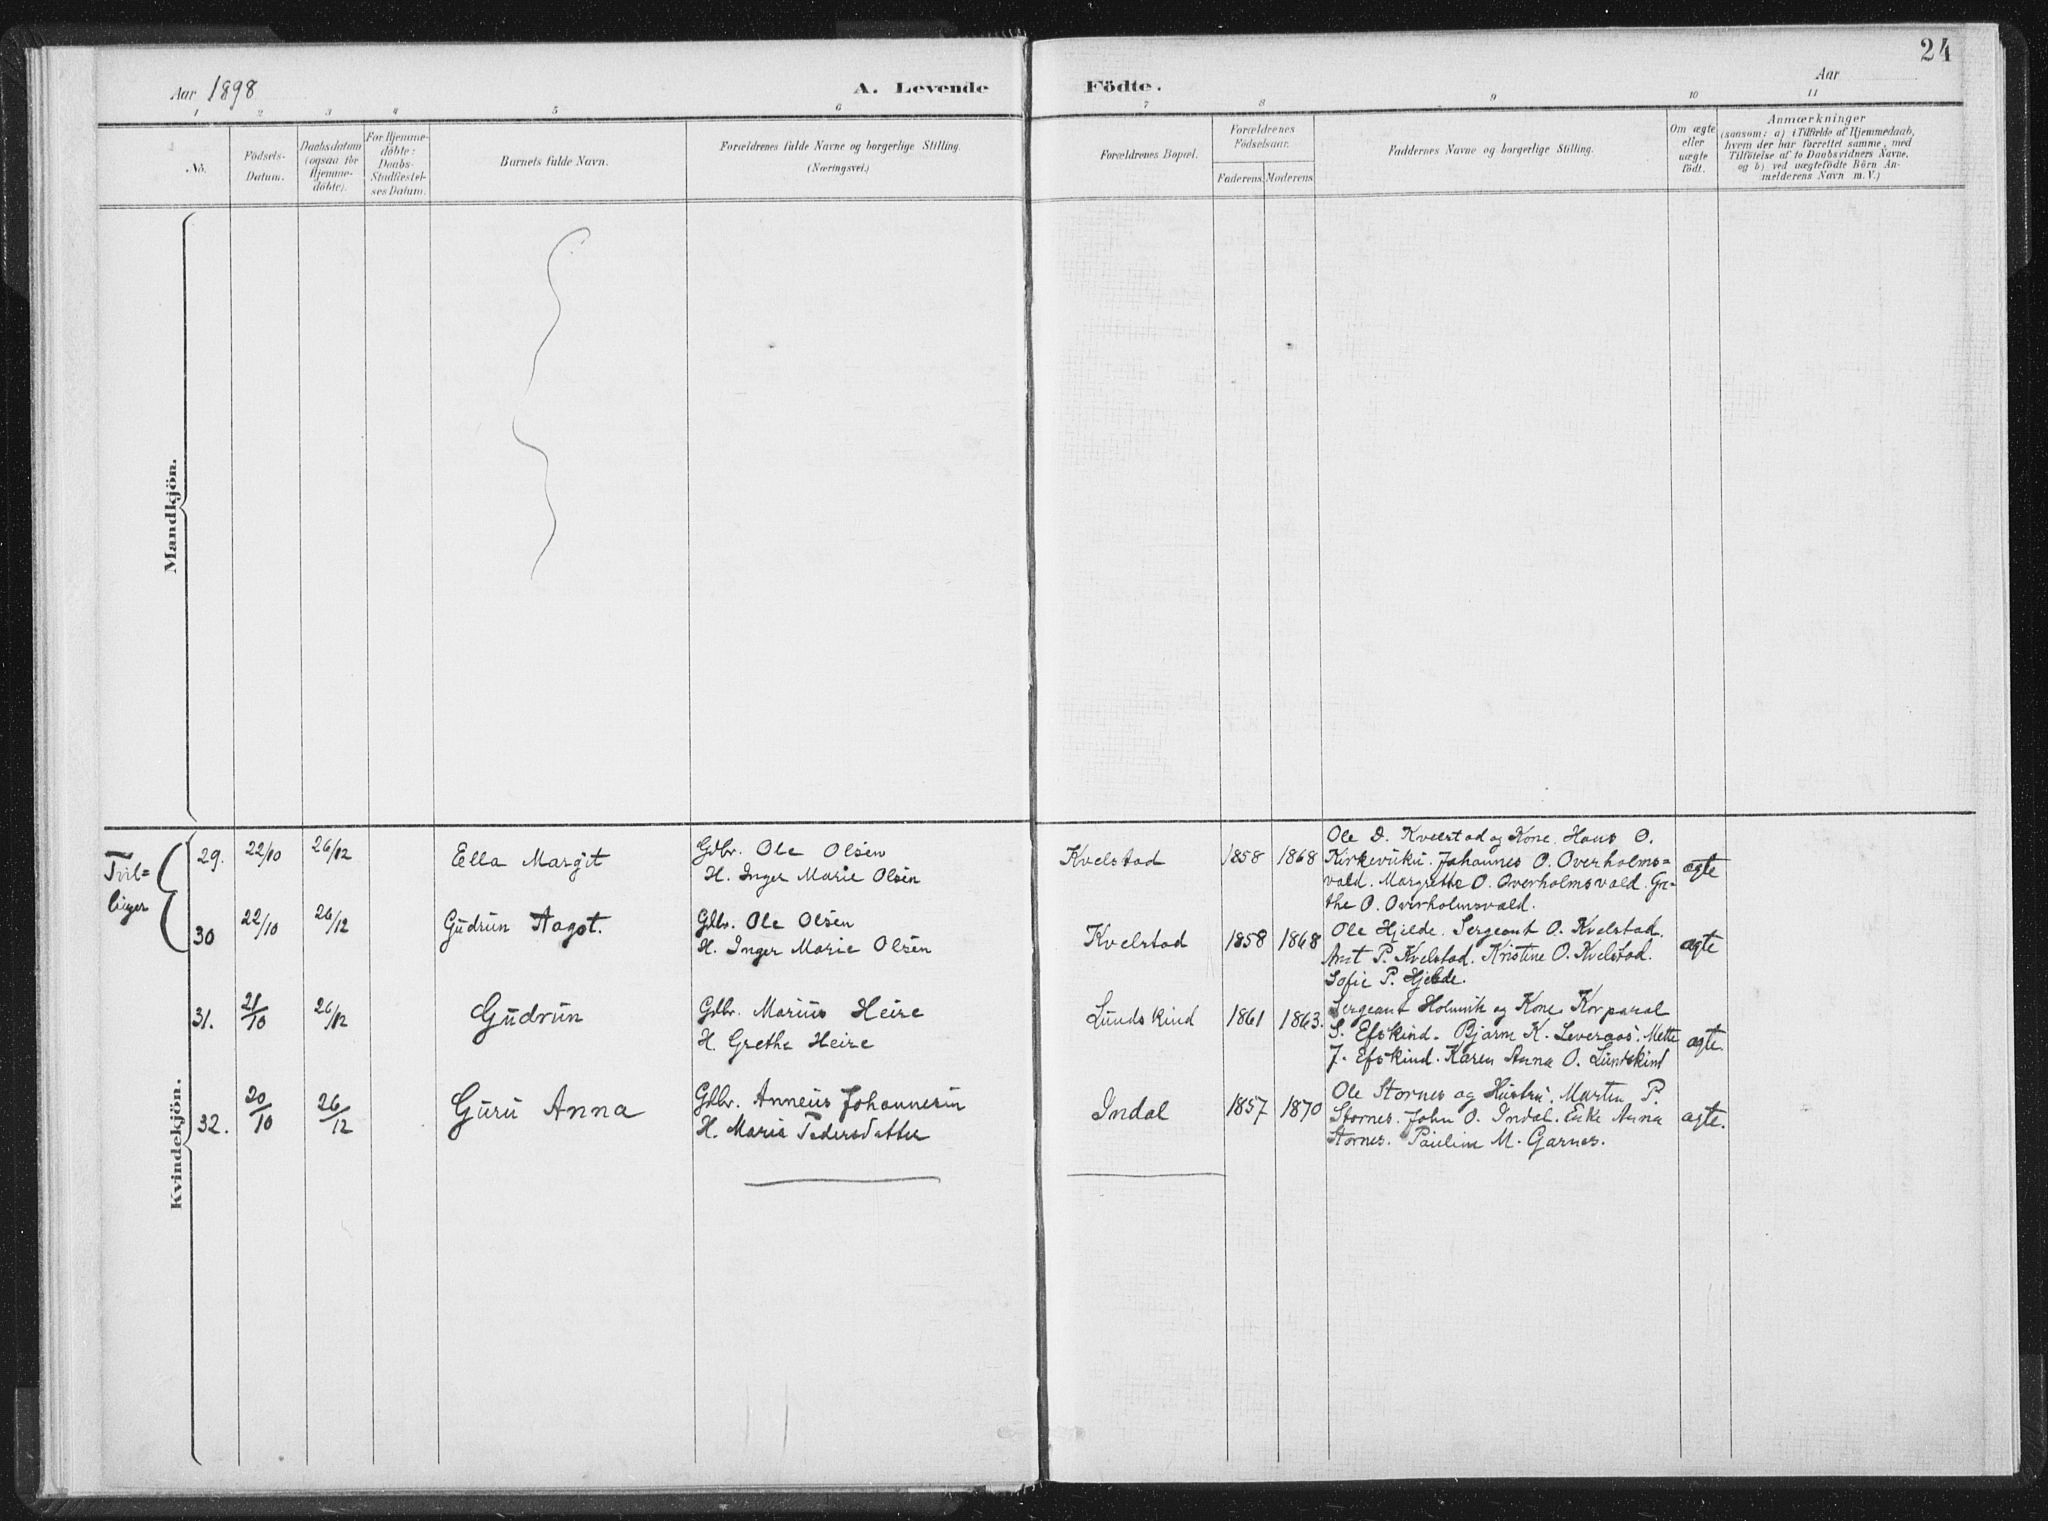 24
Aar 1898
A. Levende Födte.
Aar
1 2 3 4 5 6 7 8 9 10 11
No.
Födsels-
Datum.
Daabsdatum
(ogsaa for
Hjemme-
döbte).
For Hjemme-
döbte:
Daabs-
Stadfæstel-
ses Datum.
Barnets fulde Navn.
Forældrenes fulde Navne og borgerlige Stilling.
(Næringsvei.)
Forældrenes Bopæl.
Forældrenes
Födselsaar.
Faderens. Moderens.
Faddernes Navne og borgerlige Stilling.
Om ægte
eller
uægte
födt.
Anmærkninger
(saasom: a) i Tilfælde af Hjemmedaab,
hvem der har forrettet samme, med
Tilföielse af to Daabsvidners Navne,
og b) ved uægtefödte Börn An-
melderens Navn m. V.)
Mandkjön.
Kvindekjön.
Tvil=
linger
29. 22/10 26/12 Ella Margit
Gdbr. Ole Olsen
H. Inger Marie Olsen
Kvelstad 1858 1868
Ole D. Kvelstad og Kone. Hans O.
Kirkevuku. Johannes O. Overholms=
vald. Margrethe O. Overholmsvald. Gre-
the O. Overholmsvald.
ægte
30 22/10 26/12 Gudrun Aagot.
Gdbr. Ole Olsen
H. Inger Marie Olsen
Kvelstad 1858 1868
Ole Hjelde. Sergeant O. Kvelstad.
Arnt P. Kvelstad. Kristine O. Kvelstad.
Sofie P. Hjelde.
ægte
31. 21/10 26/12 Gudrun
Gdbr. Marius Heire
H. Grethe Heire
Lundskind 1861 1863.
Sergeant Holmvik og Kone. Korporal
S. Efskind. Bjarne K. Leveraas. Mette
J. Efskind. Karen Anna O. Lundskind
ægte.
32. 20/10 26/12 Guru Anna
Gdbr. Anneus Johannesen
H. Maria Pedersdatter
Indal 1857 1870
Ole Stornes og Hustru. Morten P.
Stornes. John O. Indal. Enke Anna
Stornes. Pauline M. Garnes.
ægte.